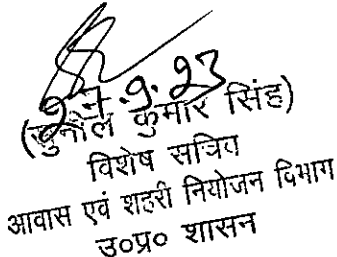 27.9.23
(सुनील कुमार सिंह)
विशेष सचिव
आवास एवं शहरी नियोजन विभाग
उ०प्र० शासन